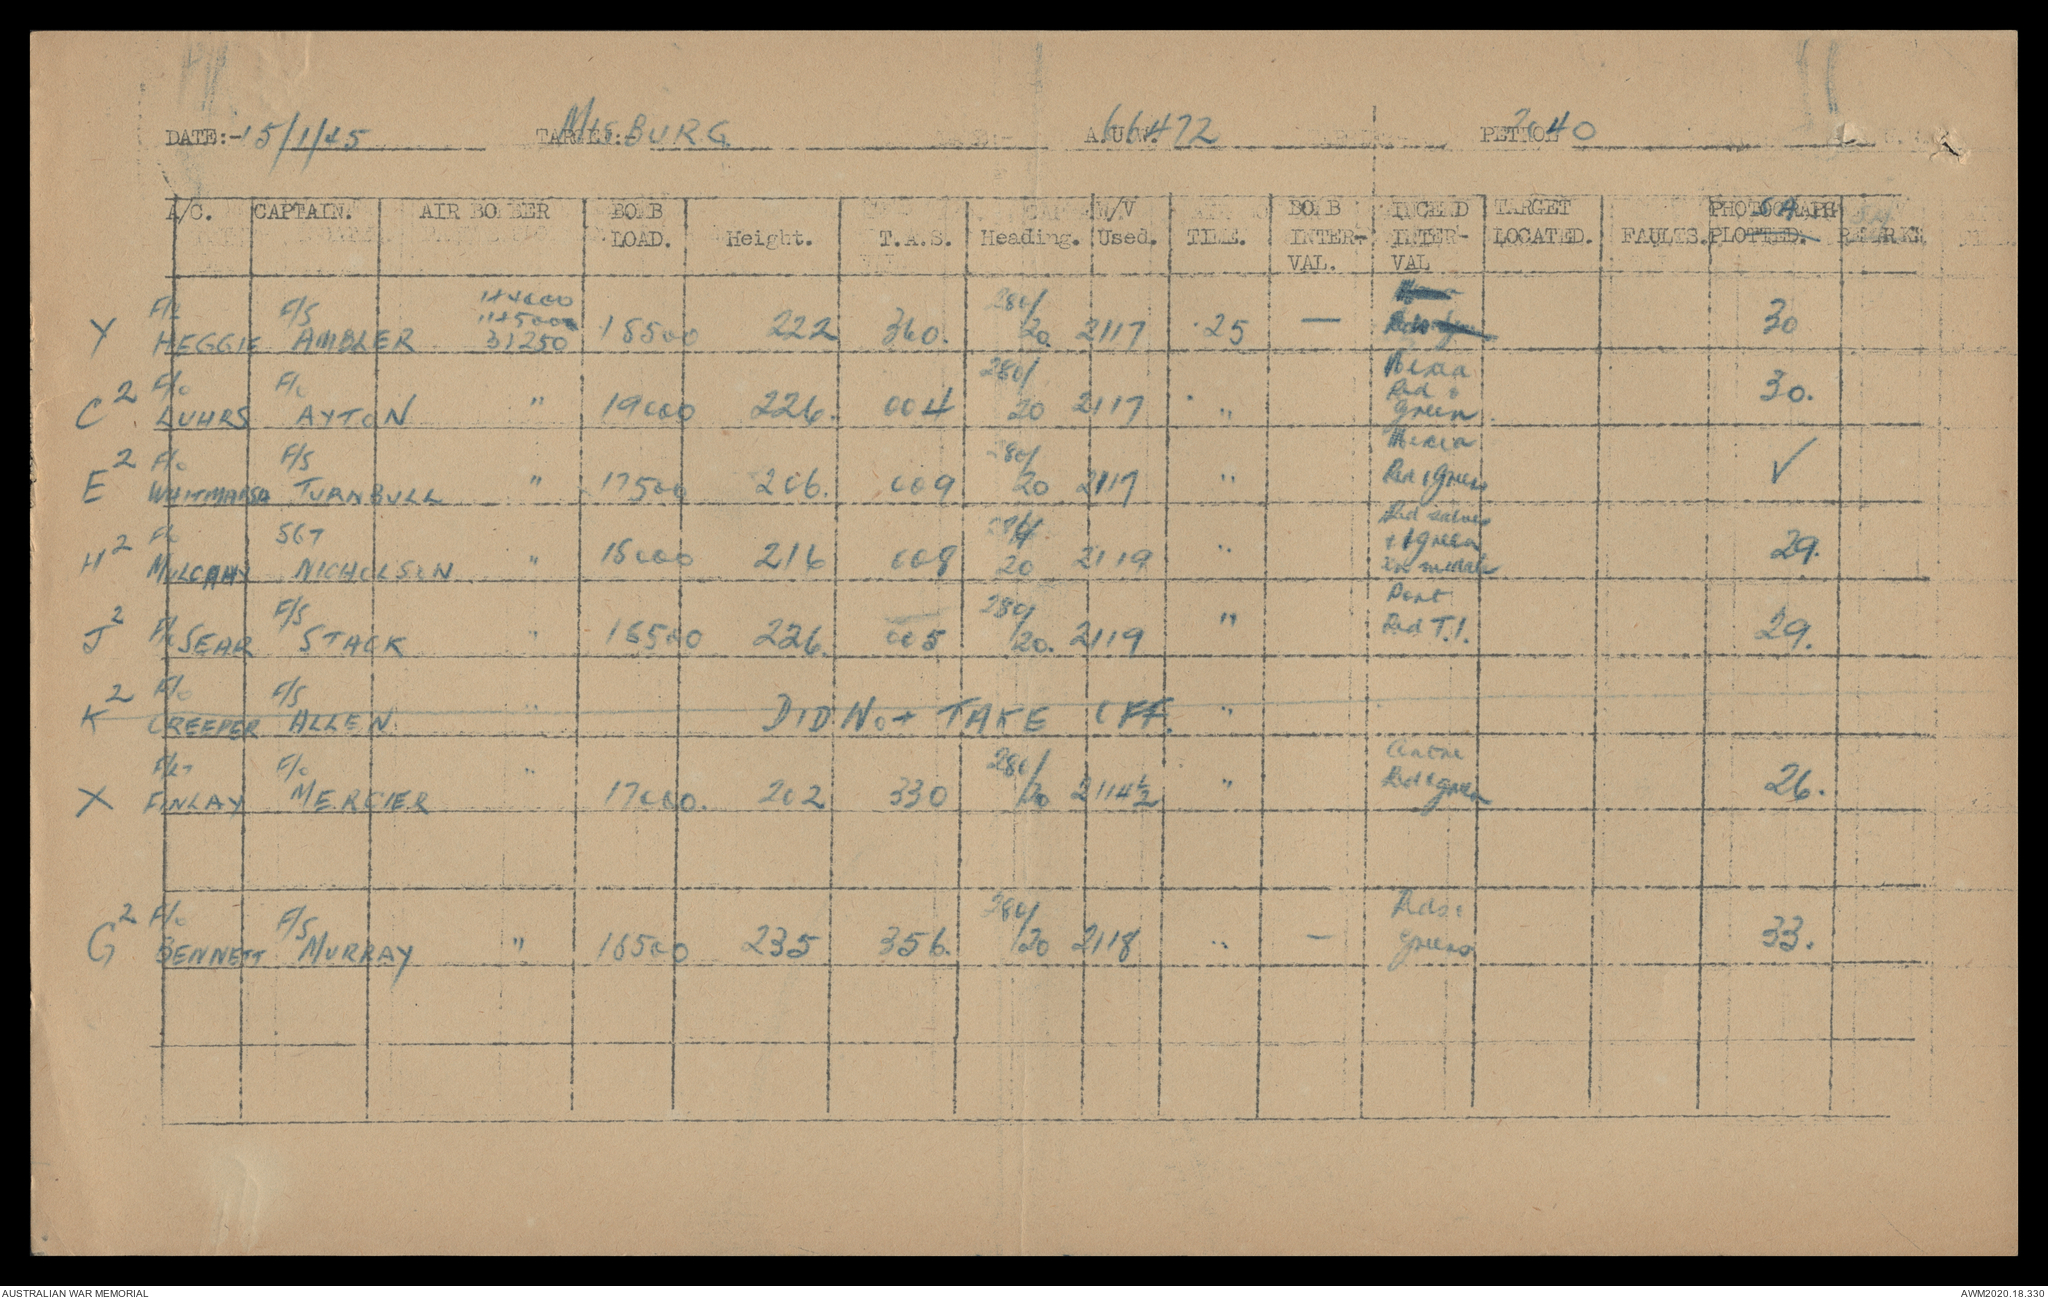 DATE:- 15/1/45 TARGET:- MISBURG A.U.W. 66472 PETROL 2040
A/C. CAPTAIN. AIR BOMBER BOMB LOAD. Height. T.A.S. Heading. W/V Used. TIME. BOMB INTER-VAL. INCEND INTER-VAL TARGET LOCATED. FAULTS. PHOTOGRAPH PLOTTED. REMARKS
1x4000
Y HEGGIE F/S AMBLER 31250 18500 222 360. 280/20 2117 .25 — 30
C2 F/o LUHRS F/o AYTON " 19000 226. 004 280/20 2117 " Red + green 30.
E2 F/o WHITMARSH F/S TURNBULL " 17500 206. 009 280/20 2117 " Red + Green ✓
H2 F/o MULCAHY SGT NICHOLSON " 18000 216 008 20 2119 " + 1 green 29.
J2 SEAR F/S STACK " 18500 226. 005 280/20. 2119 " Red T.I. 29.
K2 F/o CREEPER F/S ALLEN " DID Not TAKE OFF. "
X FINLAY F/o MERCIER " 17000. 202 330 280/20 2114½ " Centre Red + green 26.
G2 F/o BENNETT F/S MURRAY " 18500 235 356. 280/20 2118 " — Reds + greens 33.
AUSTRALIAN WAR MEMORIAL AWM2020.18.330